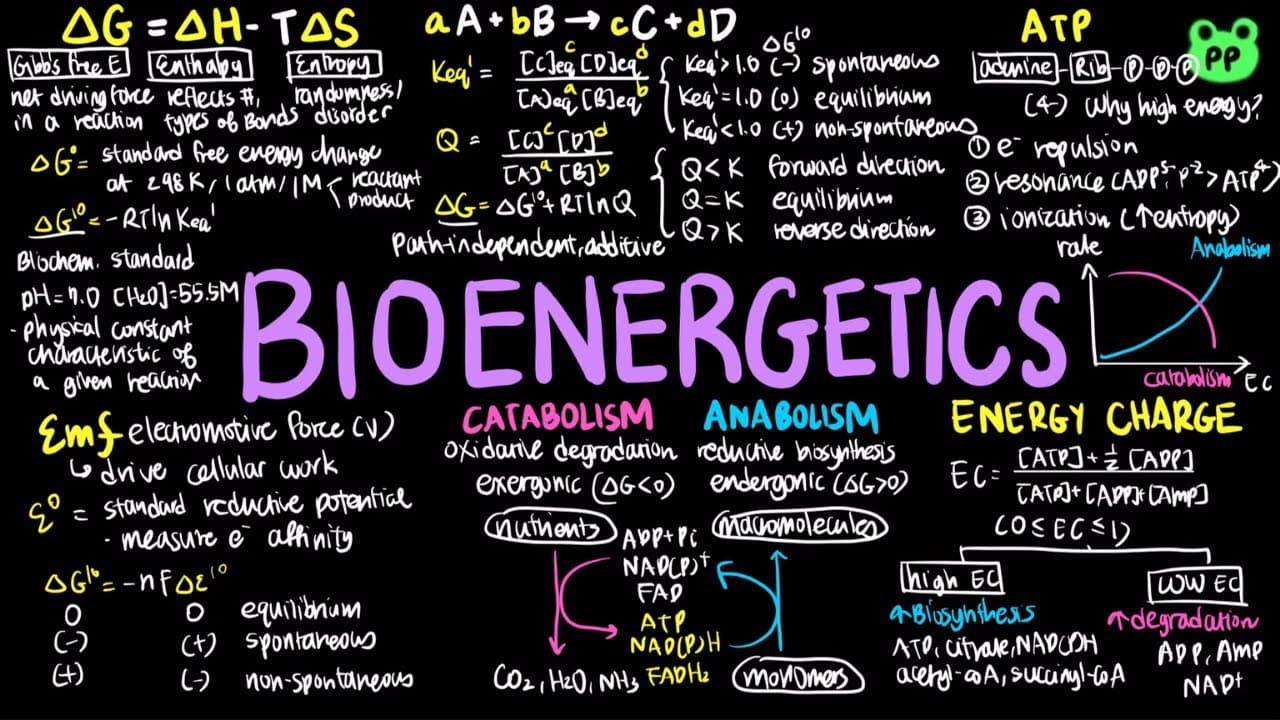 ΔG = ΔH - TΔS
Gibb's Free E
Enthalpy
Entropy
net driving force
in a reaction
reflects #,
types of Bonds
randomness/
disorder
ΔG° = standard free energy change
at 298K/1atm/1M < reactant
product
ΔG'° = -RTln Keq'
Biochem. standard
pH=7.0 [H2O]=55.5M
- physical constant
characteristic of
a given reaction
aA + bB → cC + dD
Keq' = [C]eq^c [D]eq^d / [A]eq^a [B]eq^b
ΔG'°
Keq' > 1.0 (-) spontaneous
Keq' = 1.0 (0) equilibrium
Keq' < 1.0 (+) non-spontaneous
Q = [C]^c [D]^d / [A]^a [B]^b
Q < K forward direction
Q = K equilibrium
Q > K reverse direction
ΔG = ΔG'° + RTlnQ
Path-independent, additive
ATP
PP
adenine - Rib - P - P - P
(4-) Why high energy?
① e- repulsion
② resonance (ADP, P > ATP)
③ ionization (↑entropy)
rate
Anabolism
catabolism
EC
BIOENERGETICS
Emf electromotive force (V)
↳ drive cellular work
ε° = standard reductive potential
- measure e- affinity
ΔG'° = -nFΔε'°
0 0 equilibrium
(-) (+) spontaneous
(+) (-) non-spontaneous
CATABOLISM
oxidative degradation
exergonic (ΔG<0)
nutrients
CO2, H2O, NH3
ANABOLISM
reductive biosynthesis
endergonic (ΔG>0)
macromolecules
monomers
ADP+Pi
NAD(P)+
FAD
ATP
NAD(P)H
FADH2
ENERGY CHARGE
EC = [ATP] + ½ [ADP] / [ATP]+[ADP]+[AMP]
(0 ≤ EC ≤ 1)
high EC
↑Biosynthesis
ATP, citrate, NAD(P)H
acetyl-coA, succinyl-coA
LOW EC
↑degradation
ADP, AMP
NAD+